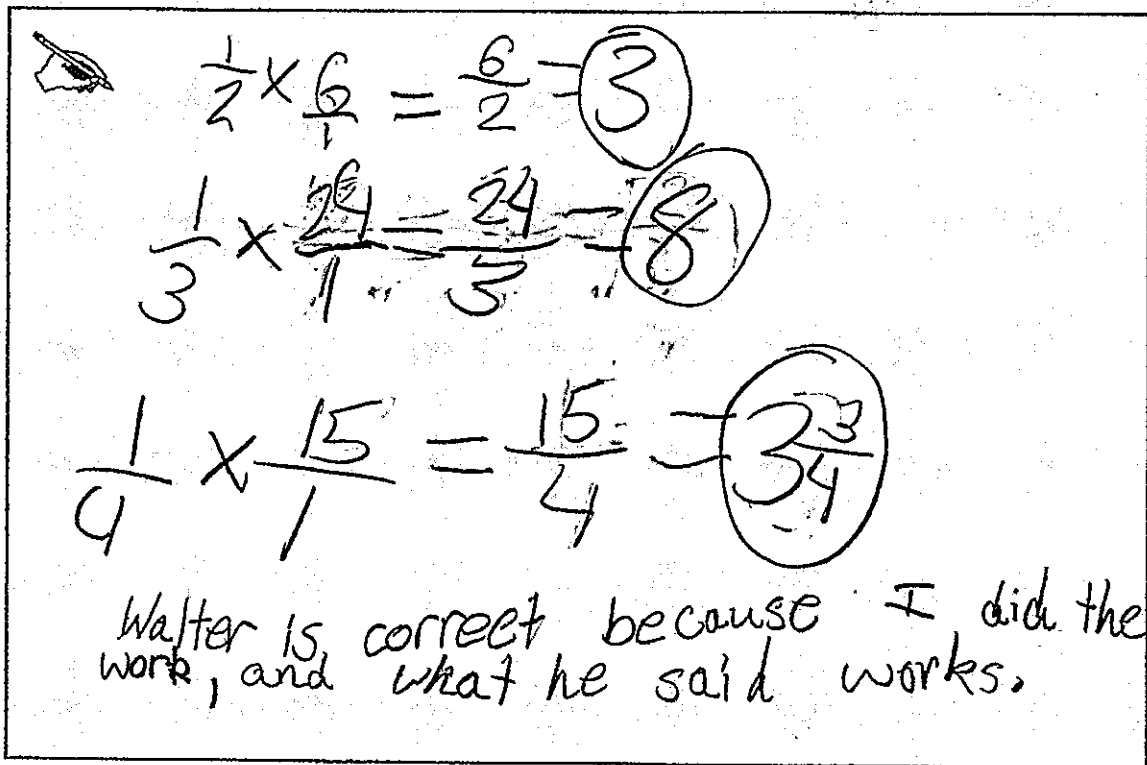 1/2 × 6/1 = 6/2 = 3
1/3 × 24/1 = 24/3 = 8
1/4 × 15/1 = 15/4 = 3 3/4
Walter is correct because I did the
work, and what he said works.